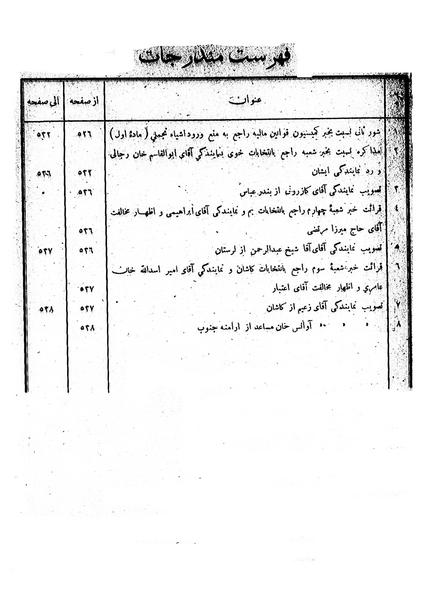 فهرست مندرجات
عنوان از صفحه الی صفحه
۱ شور ثانی نسبت بخبر کمیسیون قوانین مالیه راجع به منع ورود اشیاء تجملی (مادهٔ اول) ۵۲۶ ۵۳۲
۲ مذاکره نسبت بخبر شعبه راجع بانتخابات خوی نمایندگی آقای ابوالقاسم خان رجالی
و رد نمایندگی ایشان ۵۳۲ ۵۳۶
۳ تصویب نمایندگی آقای کازرونی از بندر عباس ۵۳۶ »
۴ قرائت خبر شعبهٔ چهارم راجع بانتخابات بم و نمایندگی آقای ابراهیمی و اظهار مخالفت
آقای حاج میرزا مرتضی ۵۳۶
۵ تصویب نمایندگی آقای آقا شیخ عبدالرحمن از لرستان ۵۳۶ ۵۳۷
۶ قرائت خبر شعبه سوم راجع بانتخابات کاشان و نمایندگی آقای امیر اسدالله خان
عامری و اظهار مخالفت آقای اعتبار ۵۳۷
۷ تصویب نمایندگی آقای زعیم از کاشان ۵۳۷ ۵۳۸
۸ » » » آوانس خان مساعد از ارامنه جنوب ۵۳۸